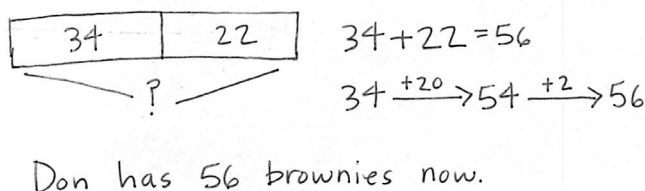 34 22
?
34+22=56
34 +20→ 54 +2→ 56
Don has 56 brownies now.